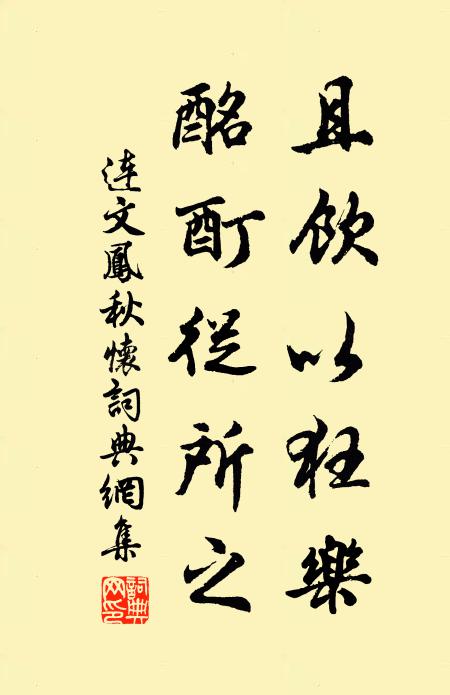 且飲以狂樂
酩酊從所之
連文鳳秋懷詞典網集
詞典網印